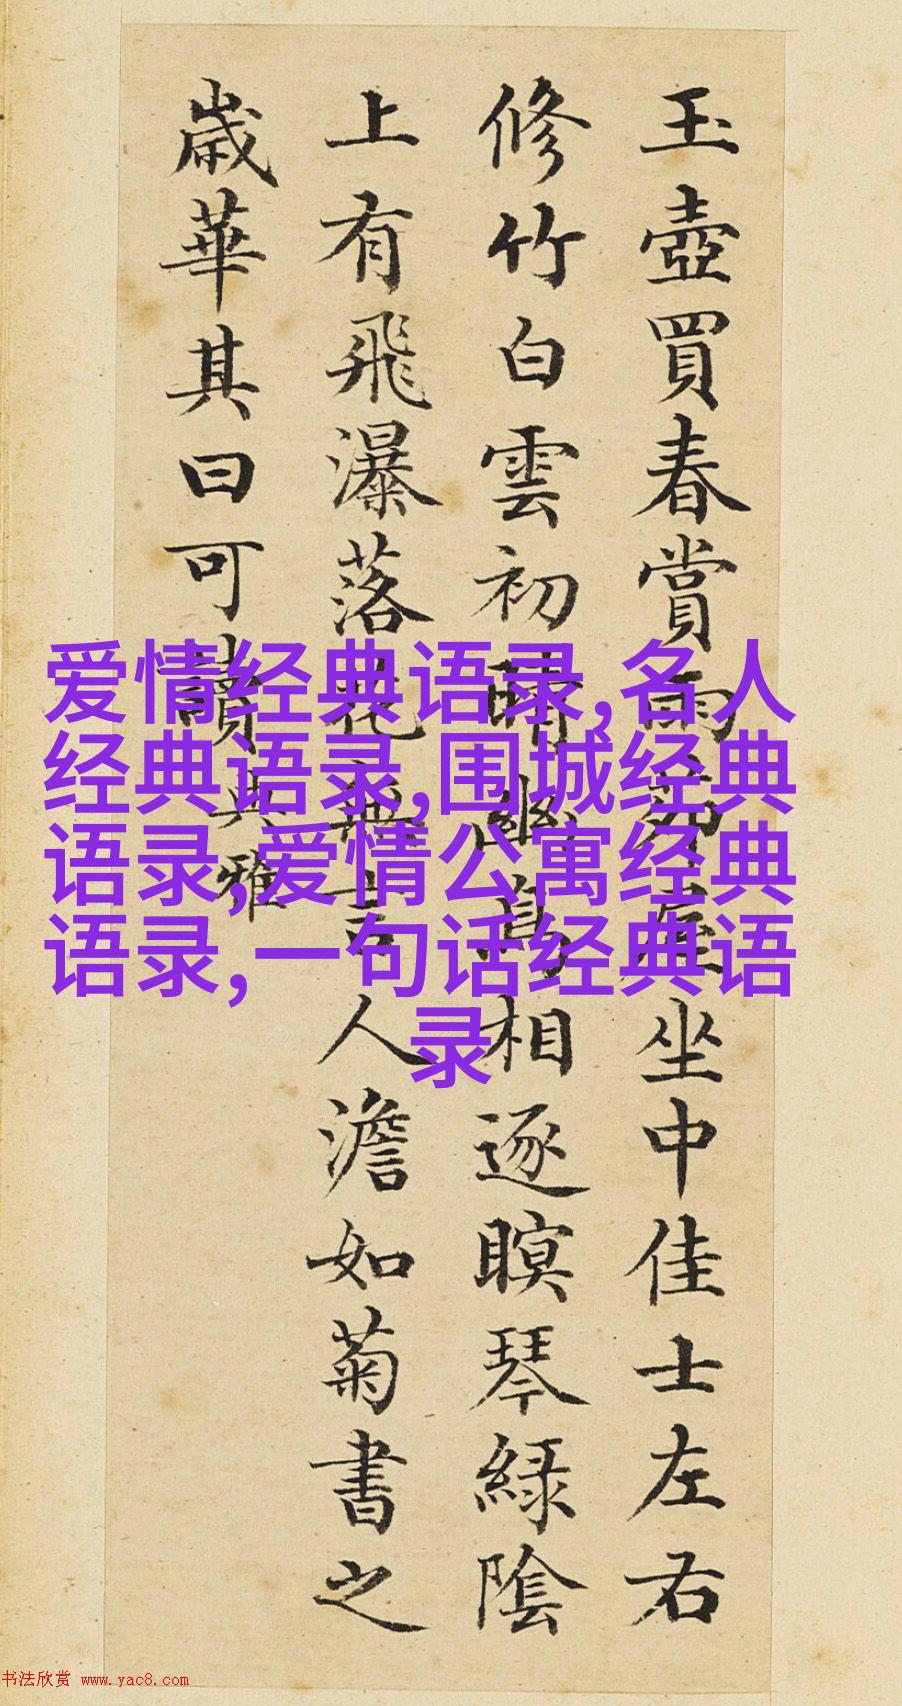 玉壺買春賞雨茆屋坐中佳士左右
修竹白雲初晴幽鳥相逐瞑琴綠陰
上有飛瀑落花無言人澹如菊書之
歲華其曰可讀典雅
爱情经典语录,名人
经典语录,围城经典
语录,爱情公寓经典
语录,一句话经典语
录
书法欣赏 www.yac8.com